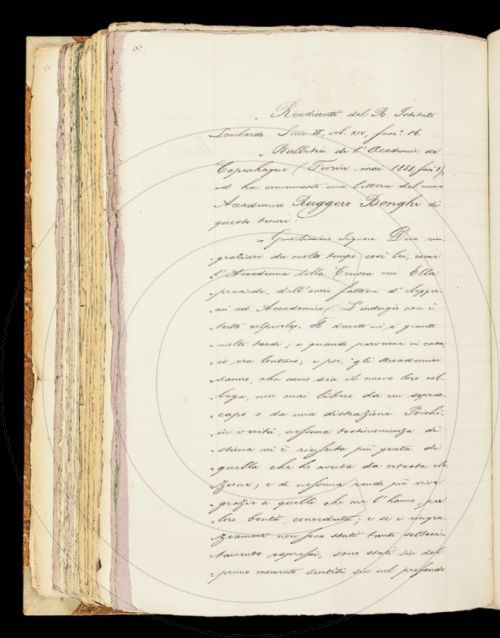 Rendiconti del R. Istituto
Lombardo. Serie II, vol. XIV, fasc. 16.
Bulletin de l'Académie de
Copenhague (Février, mai 1881,
ed ha comunicato una lettera del nuovo
Accademico Ruggero Bonghi di
questo tenore:
Chiarissimo Signore. Devo rin-
graziare da molto tempo così lei, come
l'Accademia della Crusca cui Ella
presiede, dell'onor fattomi d'elegger-
mi ad Accademico. L'indugio non è
tutto colpevole. Il decreto mi è giunto
molto tardi; e quando perveniva in casa,
io era lontano; e poi, gli Accademici
sanno, che come sia il nuovo loro col-
lega, non mai libero da un sopra-
capo o da una distrazione. Poichè,
in verità, nessuna testimonianza di
stima mi è riuscita più grata di
quella che ho avuta da cotesta ele-
zione; e di nessuna rendo più vive
grazie a quelli che me l'hanno, per
loro bontà, conceduta; e se i ringra-
ziamenti non sono stati tanto solleci-
tamente espressi, sono stati sin dal
primo momento sentiti nel profondo